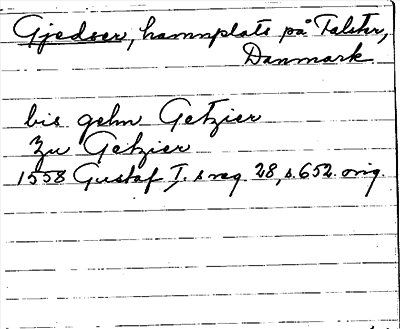 Gjedser, hamnplats på Falster,
Danmark
bis gehn Getzier
Zu Getzier
1558 Gustaf I. s reg. 28, s. 652. orig.